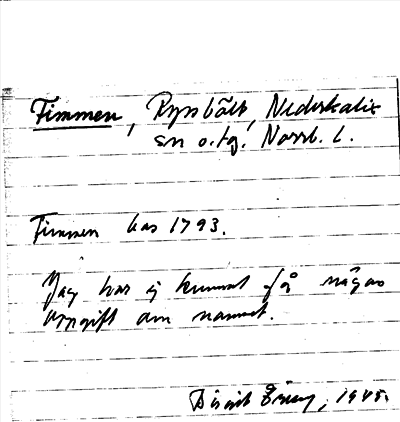 Fimmen, Rysbält, Nederkalix
sn o. tg. Norrb. l.
Fimmen kas 1793.
Jag har ej kunnat få någon
uppgift om namnet.
Birgit 1945.